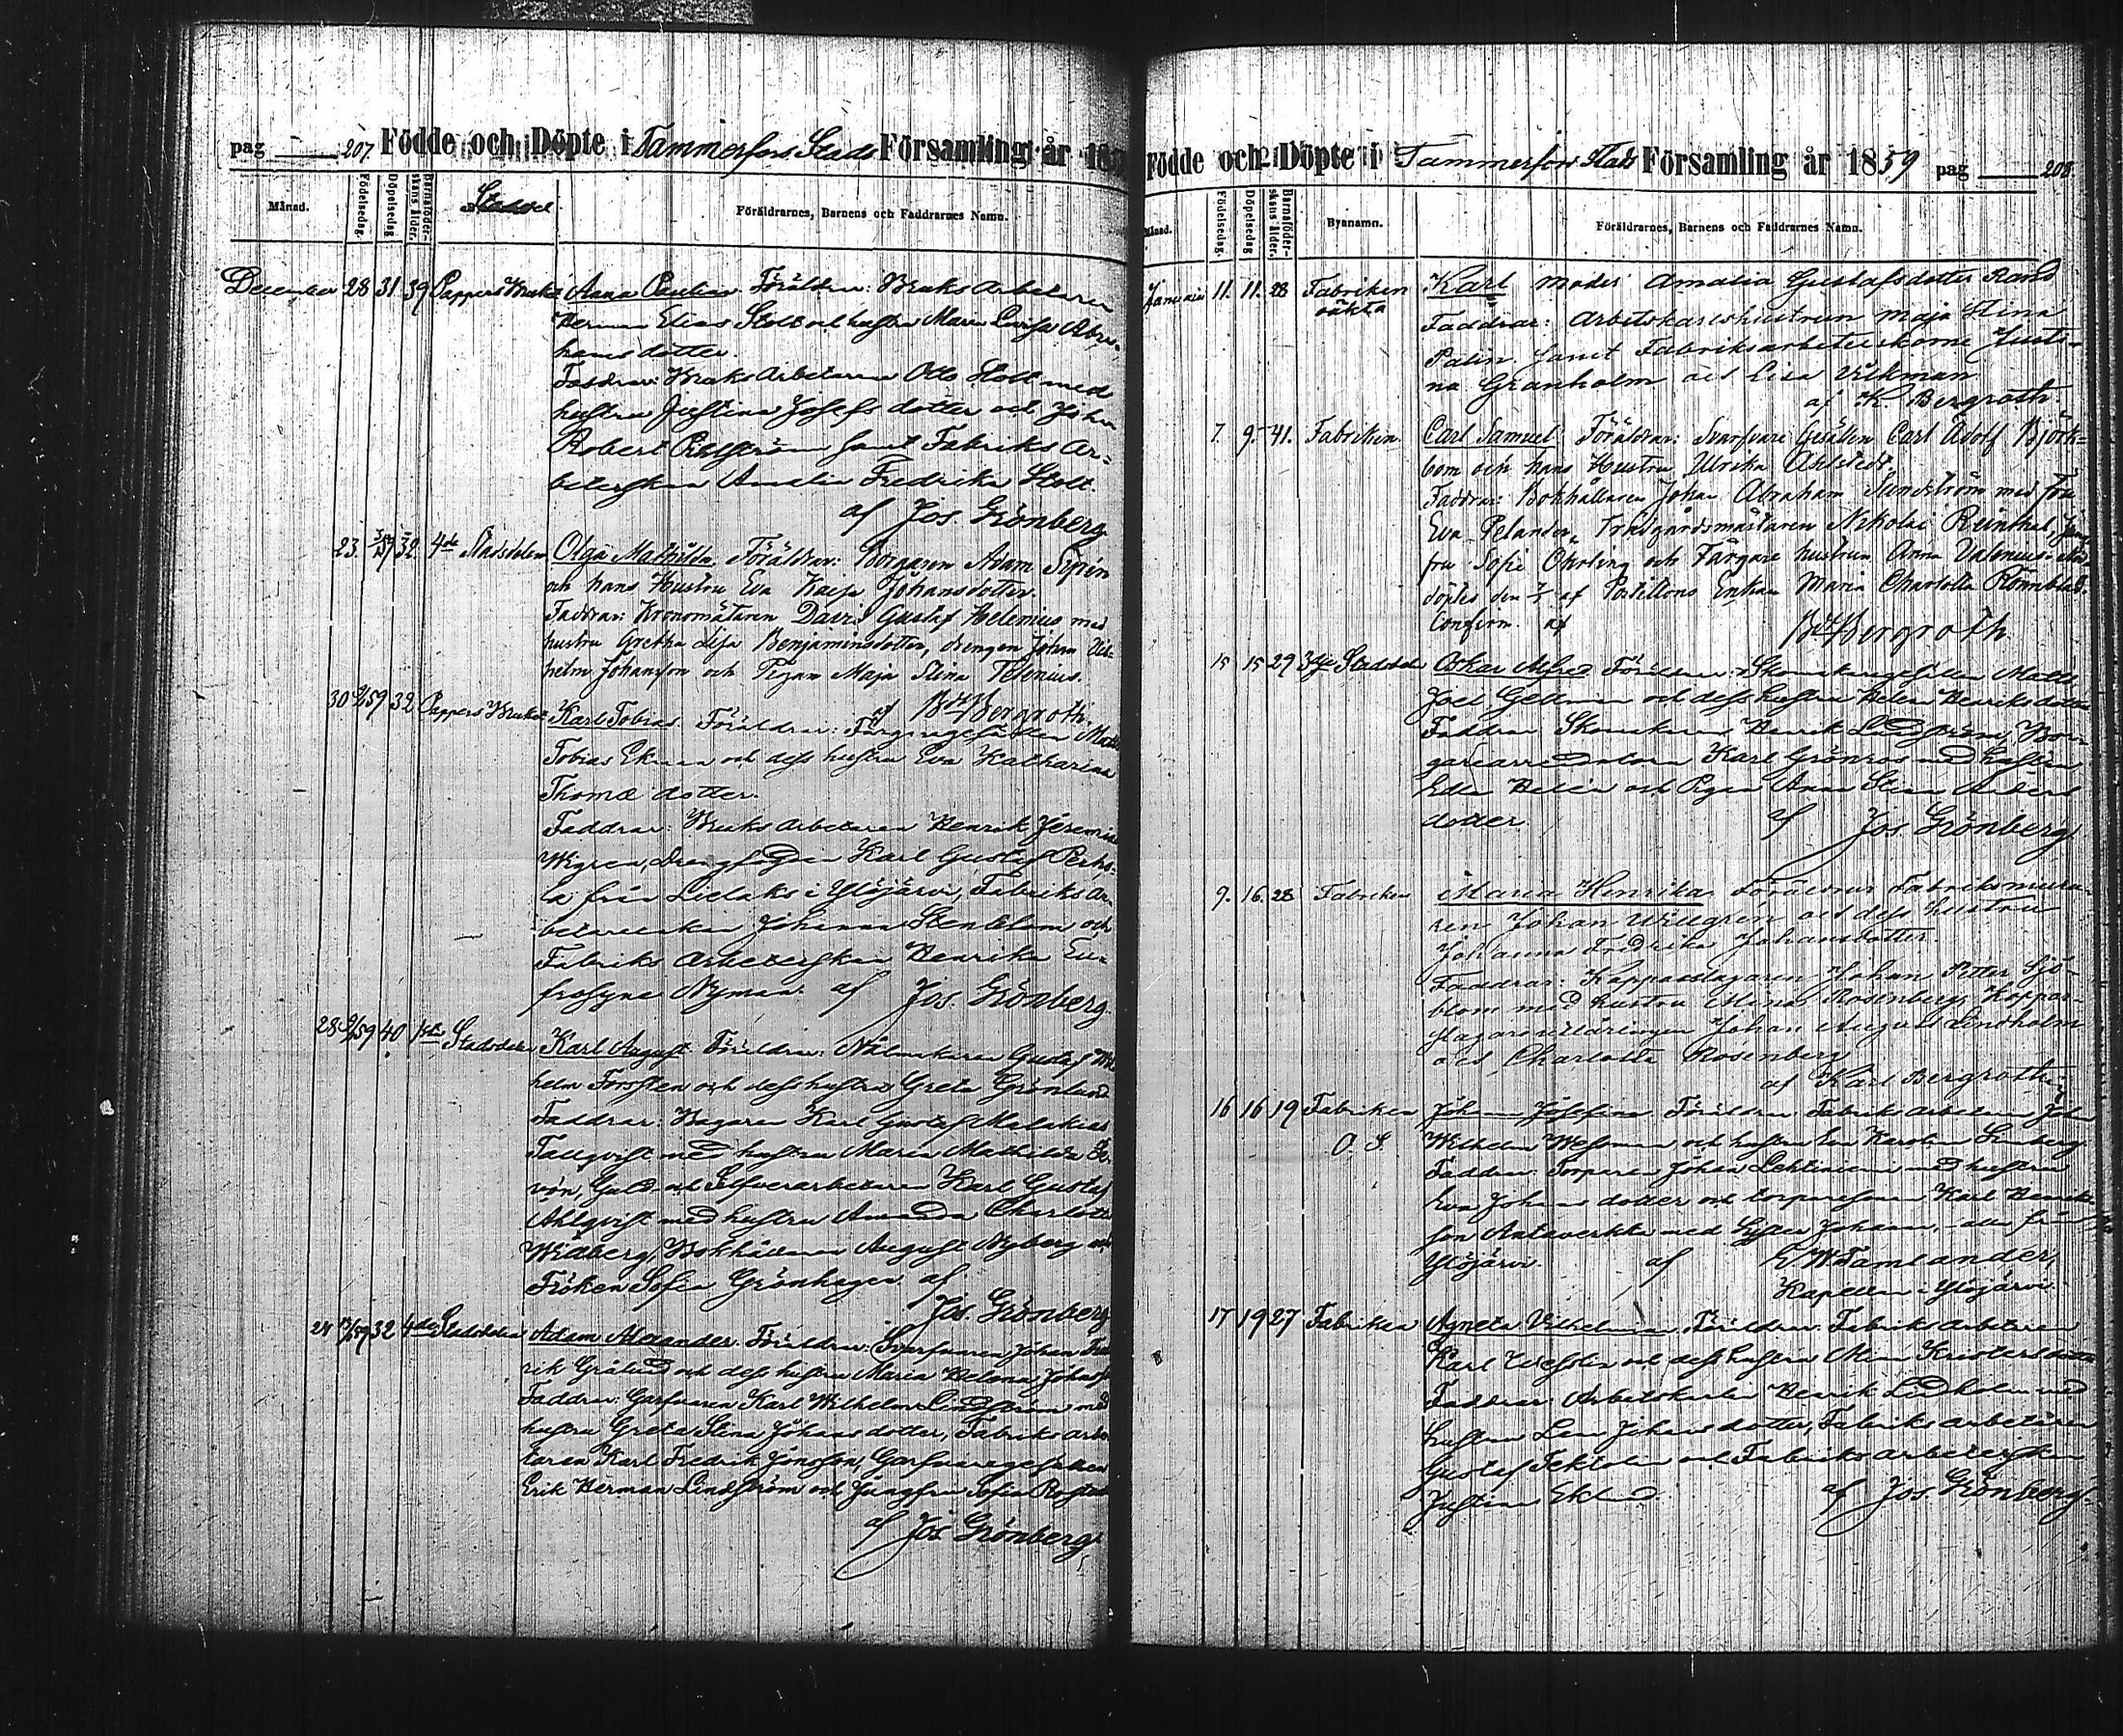 pag 207. Födde och Döpte i Tammerfors Stads Församling år 18
Månad. Födelsedag. Döpelsedag. Barnaföderskans ålder. Föräldrarnes, Barnens och Faddrarnes Namn.
December 28 31 39 Pappers Bruket Anna Paulina. Föräldrar: Bruks Arbetaren
Herman Elias Stolt och hustru Maria Lovisa Abra-
hams dotter.
Faddrar: Bruks Arbetaren Otto Stolt med
hustru Justina Josefs dotter och Johan
Robert samt Fabriks Ar-
beterskan Amalia Fredrika Stolt.
af Jos. Grönberg
23. 32 4de Stadsdelen Olga Mathilda. Föräldrar: Borgaren Adam Sirén
och hans Hustru Eva Kaisa Johansdotter.
Faddrar: Kronomätaren David Gustaf Helenius med
hustru Gretha Lisa Benjaminsdotter, drengen Johan Vil-
helm Johansson och Pigan Maja Stina Telenius.
af Bergroth.
30 2/1 59 32 Pappers Bruket Karl Tobias. Föräldrar: Färgaregesällen Matts
Tobias Ekman och dess hustru Eva Katharina
Thomæ dotter.
Faddrar: Bruks Arbetaren Henrik Jeremias
Wigren, Drengfogden Karl Gustaf Perho-
la från Lielaks i Ylöjärvi, Fabriks Ar-
beterskan Johanna Stenblom och
Fabriks Arbeterskan Henrika Eu-
frosyne Nyman. af Jos. Grönberg.
28 2/1 59 40 1sta Stadsdelen Karl August. Föräldrar: Nålmakaren Gustaf Wil
helm Forsstén och dess hustru Greta Grönlund
Faddrar: Bagaren Karl Gustaf Malakias
Tallqvist med hustru Maria Mathilda
Guld- och Silfverarbetaren Karl Gustaf
Ahlqvist med hustru Amanda Charlotta
Widberg, Bokhållaren August Nyberg och
Fröken Sofia Grönhagen af
Jos. Grönberg
24 59 32 4de Stadsdelen Adam Alexander. Föräldrar: Svarfvaren Johan Fred
rik Grälund och dess hustru Maria Helena Johans
Faddrar: Garfvaren Karl Wilhelm Lindström med
hustru Greta Stina Johans dotter, Fabriks arbe
taren Karl Fredrik Jonsson, Garfvaregesällen
Erik Herman Lindström och Jungfru Sofia
af Jos. Grönberg
Födde och Döpte i Tammerfors Stads Församling år 1859 pag 208
Månad. Födelsedag. Döpelsedag. Barnaföderskans ålder. Byanamn. Föräldrarnes, Barnens och Faddrarnes Namn.
Januari 11. 11. 28 Fabriken Karl moder Amalia Gustafsdotter Rand
oäkta Faddrar: Arbetskarlshustrun Maja Stina
Palin samt Fabriksarbeterskorne Justi-
na Granholm och Lisa Vikman.
af K. Bergroth.
7. 9. 41. Fabriken. Carl Samuel. Föräldrar: Svarfvare Gesällen Carl Adolf Björk-
bom och hans Hustru Ulrika Ahlstedt.
Faddrar: Bokhållaren Johan Abraham Sundström med Fru
Eva Pelander, Trädgårdsmästaren Nikolai Reinthal, Jung
fru Sofie Ohrling och Färgare hustrun Anna Valenius. Nöd-
döptes den af Postillons Enkan Maria Charlotta Rönnblad.
Confirm. af Bergroth
15 15 29 3dje Stadsdelen Oskar Alfred Föräldrar: Skomakaregesällen Matts
Joel Gellman och dess hustru Helena Henriksdotter
Faddrar Skomakaren Henrik Lindström, Bor-
garearrendatorn Karl Grönroos med hustru
Edla Helén och Pigan Anna Stina Anders
dotter. af Jos Grönberg
9. 16. 28 Fabriken Maria Henrika. Föräldrar Fabriksmura-
ren Johan Willgrén och dess hustru
Johanna Fredrika Johansdotter.
Faddrar: Kopparslagaren Johan Petter Sjö-
blom med hustru Mina Rosenberg, Koppar-
slagare Johan August Lindholm
och Charlotta Rosenberg
af Karl Bergroth
16 16 19 Fabriken Johanna Josefina Föräldrar Fabriks arbetaren Johan
O. S. Wilhelm Wessman och hustru Eva Karolina
Faddrar: Torparen Johan Lehtiniemi med hustru
Eva Johans dotter och torparesonen Karl Henriks
son Antaverkka med Syster Johanna, alla från
Ylöjärvi. af C W Tamlander,
Kapellan i Ylöjärvi.
17 19 27 Fabriken Agneta Vilhelmina. Föräldrar: Fabriks Arbetaren
Karl och dess hustru Mina Kristers dotter
Faddrar: Arbetskarlen Henrik Lindholm med
hustru Lena Johans dotter, Fabriks arbetaren
Gustaf och Fabriks Arbeterskan
Justina Eklund. af Jos. Grönberg.